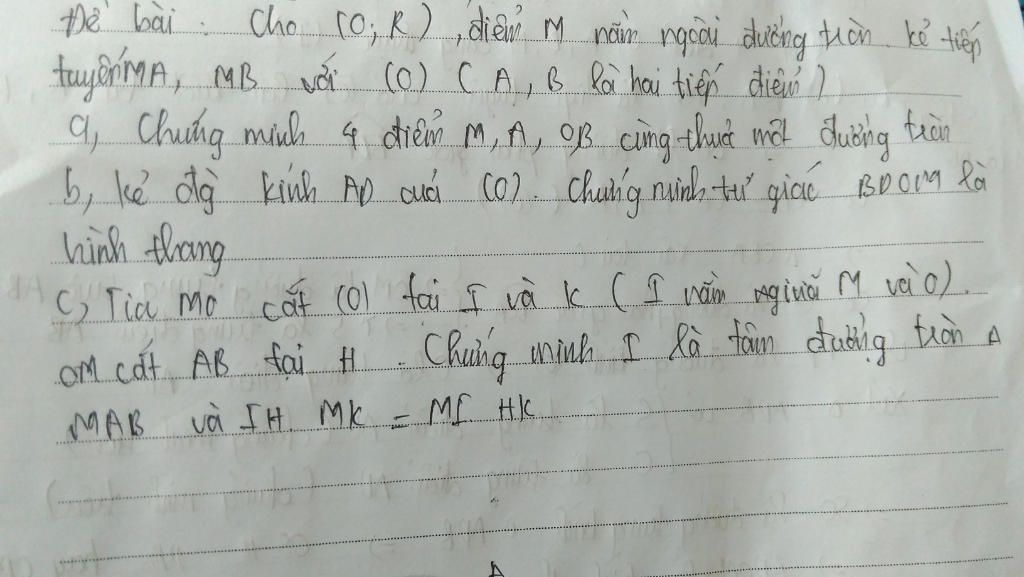 Đề bài : Cho (O; R), điểm M nằm ngoài đường tròn. kẻ tiếp
tuyến MA, MB với (O) ( A, B là hai tiếp điểm )
a, Chứng minh 4 điểm M, A, O,B cùng thuộc một đường tròn
b, kẻ đg kính AD của (O). Chứng minh tứ giác BDOM là
hình thang
c) Tia MO cắt (O) tại I và K ( I nằm giữa M và O).
OM cắt AB tại H . Chứng minh I là tâm đường tròn Δ
MAB và IH. MK = MI HK
A